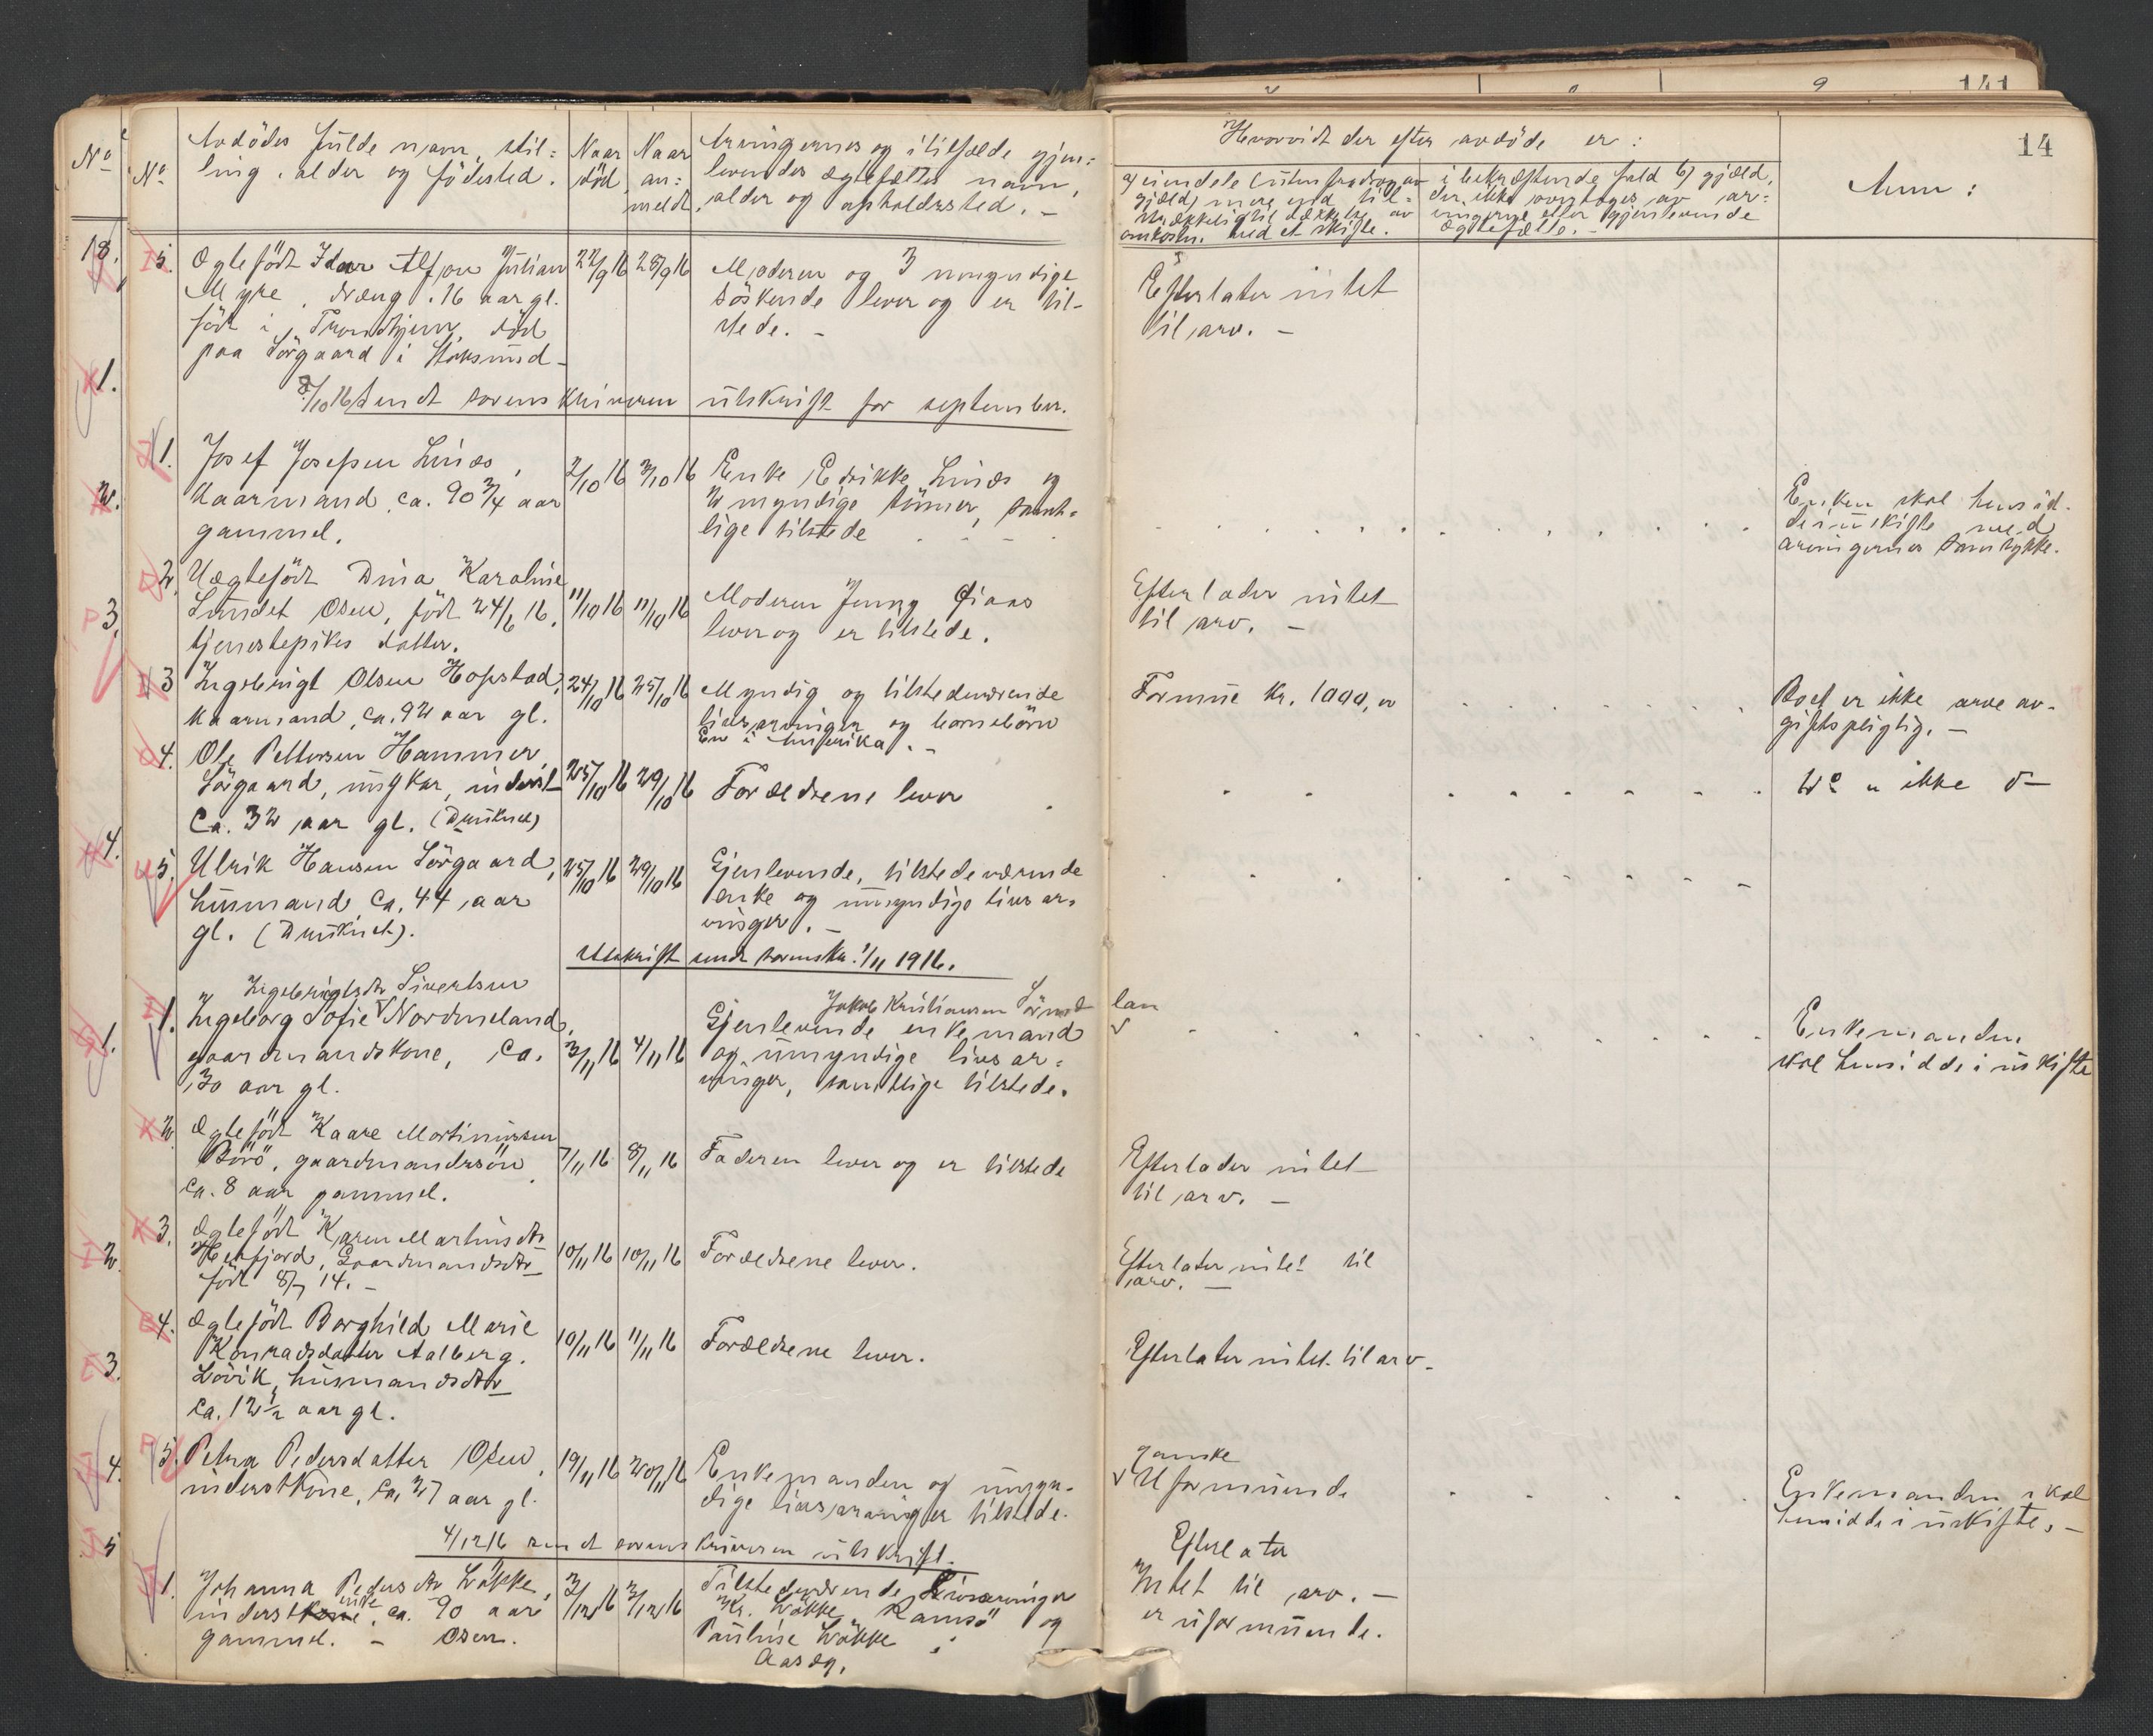 141
14
No
No
Avdödes fulde navn, stil=
ling, alder og födested.
Naar
död
Naar
an=
meldt.
Arvingernes og i tilfælde gjen=
levendes ægtefælles navn,
alder og opholdssted. -
Hvorvidt der efter avdöde er :
a) eiendele (uten fradrag av
gjæld) mere end til=
strækkelig til dækkelse av
omkostn. ved et skifte.
i bekræftende fald b) gjæld,
der ikke overtages av ar=
vingerne eller gjenlevende
ægtefælle. -
Anm :
18.
5.
Ægtefödt Idar Alfon Julian
Myre, dreng, 16 aar gl.
född i Trondhjem, död
paa Sörgaard i Stoksund -
22/9 16
28/9 16
Moderen og 3 umyndige
söskende lever og er til-
stede. -
Efterlater intet
til arv. -
8/10 16 sendt sorenskriveren utskrift for september.
1.
1.
Josef Josefsen Linæs,
kaarmand, ca. 90 3/4 aar
gammel.
2/10 16
3/10 16
Enke Edrikke Linæs og
2 myndige sönner, samt=
lige tilstede
Enken skal hensid-
de i uskifte med
arvingernes samtykke.
2.
2.
Uægtefödt Dina Karoline
Sundet Osen, född 24/6 16,
tjenestepikes datter.
11/10 16
11/10 16
Moderen Jenny Oiaas
lever og er tilstede.
Efterlader intet
til arv. -
3.
3
Ingebrigt Olsen Hopstad,
kaarmand, ca. 92 aar gl.
24/10 16
25/10 16
Myndig og tilstedeværende
livsarvinger og barnebörn
En i Amerika. -
Formue Kr. 1000,00
Boet er ikke arve av-
giftspligtig. -
4.
Ole Pettersen Hammer,
Sörgaard, ungkar, inderst
ca. 32 aar gl. (Druknet)
25/10 16
29/10 16
Forældrene lever
4.
5.
Ulrik Hansen Sörgaard,
husmand, ca. 44 aar
gl. (Druknet).
25/10 16
29/10 16
Gjenlevende, tilstedeværende
enke og umyndige livsar-
vinger. -
Utskrift sendt sorenskr. 1/11 1916.
1.
1.
Ingebrigtsdtr Sivertsen
Ingeborg Sofie Nordmeland,
gaardmandskone, ca.
30 aar gl.
3/11 16
4/11 16
Jakob Kristiansen Sörmelan
Gjenlevende enkemand
og umyndige livsar=
vinger, samtlige tilstede.
Enkemanden
skal hensidde i uskifte
2
Ægtefödt Kaare Martinussen
Börö, gaardmandssön
ca. 8 aar gammel.
7/11 16
8/11 16
Faderen lever og er tilstede
Efterlader intet
til arv. -
2.
3.
Ægtefödt Karen Martinsdtr
Hellfjord, Gaardmandsdtr
född 8/7 14. -
10/11 16
10/11 16
Forældrene lever.
Efterlater intet til
arv. -
3.
4.
Ægtefödt Borghild Marie
Konradsdatter Aalberg.
Lövik, husmandsdtr
ca. 12 1/2 aar gl.
10/11 16
11/11 16
Forældrene lever.
Efterlater intet til arv -
4.
5.
Petra Pedersdatter Osen,
inderstkone, ca. 37 aar gl.
19/11 16
20/11 16
Enkemanden og umyn-
dige livsarvinger tilstede.
ganske
Uformuende
Enkemanden skal
hensidde i uskifte. -
4/12 16 sendt sorenskriveren utskrift.
5
1.
Johanna Pedersdtr Vökke,
inderstkone enke, ca. 90 aar
gammel. - Osen.
3/12 16
3/12 16
Tilstedeværende Livsarvinger
Kr. Vökke Ramsö og
Pauline Vökke
Aasæg.
Efterlater
Intet til arv. -
er uformuende.